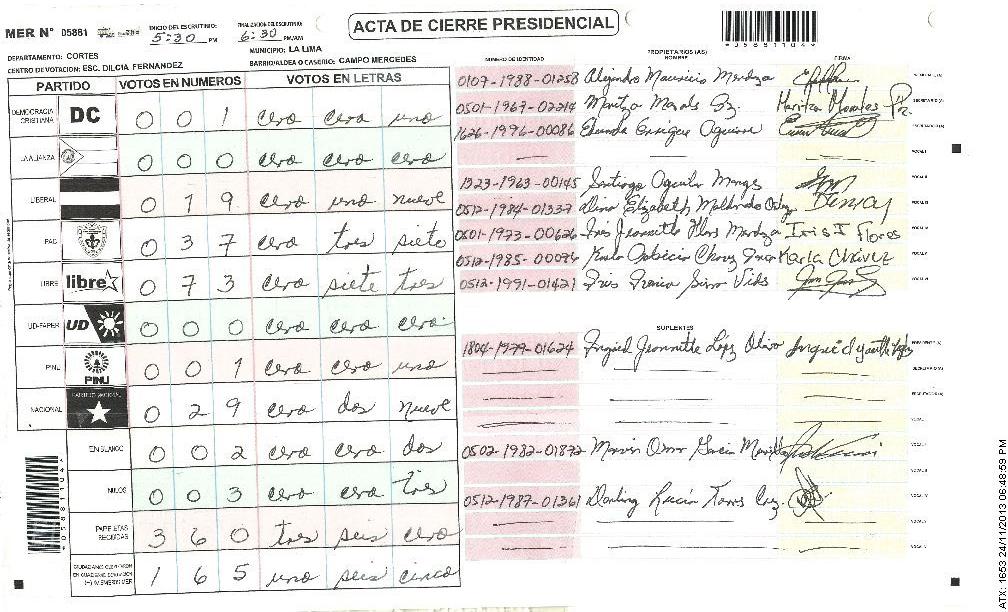 ACTA DE CIERRE PRESIDENCIAL
MER N° 05881
INICIO DEL ESCRUTINIO: 5:30 PM
FINALIZACION DEL ESCRUTINIO: 6:30 PM/AM
*05881104*
DEPARTAMENTO: CORTES
MUNICIPIO: LA LIMA
CENTRO DE VOTACION: ESC. DILCIA FERNANDEZ
BARRIO/ALDEA O CASERIO: CAMPO MERCEDES
PARTIDO VOTOS EN NUMEROS VOTOS EN LETRAS
DEMOCRACIA CRISTIANA DC 0 0 1 cero cero uno
LA ALIANZA 0 0 0 cero cero cero
LIBERAL 0 1 9 cero uno nueve
PAC 0 3 7 cero tres siete
LIBRE libre 0 7 3 cero siete tres
UD-FAPER UD 0 0 0 cero cero cero
PINU PINU 0 0 1 cero cero uno
NACIONAL PARTIDO NACIONAL 0 2 9 cero dos nueve
EN BLANCO 0 0 2 cero cero dos
NULOS 0 0 3 cero cero tres
PAPELETAS RECIBIDAS 3 6 0 tres seis cero
CIUDADANOS QUE VOTARON EN CUADERNO DE VOTACION (+) MIEMBROS MER 1 6 5 uno seis cinco
*05881104*
PROPIETARIOS (AS)
NUMERO DE IDENTIDAD NOMBRE FIRMA
0107-1988-01258 Alejandro Mauricio Mendoza PRESIDENTE (A)
0501-1967-02214 Maritza Morales Maritza Morales SECRETARIO (A)
1626-1996-00086 Eduardo Enrique Aguirre ESCRUTADOR (A)
VOCAL I
1323-1963-00145 Santiago Aguilar VOCAL II
0512-1984-01337 Alina Elizabeth Maldonado VOCAL III
0501-1973-00626 Iris Jeannette Flores Mendoza Iris I Flores VOCAL IV
0512-1985-00096 Karla Patricia Chavez Karla Chávez VOCAL V
0512-1991-01421 Iris VOCAL VI
SUPLENTES
1804-1979-01624 Ingrid Jeannette López PRESIDENTE (A)
SECRETARIO (A)
ESCRUTADOR (A)
VOCAL I
0502-1982-01872 Marvin Omar Garcia VOCAL II
VOCAL III
0512-1987-01361 Darling Torres VOCAL IV
VOCAL V
VOCAL VI
ATX: 1653 24/11/2013 06:48:59 PM